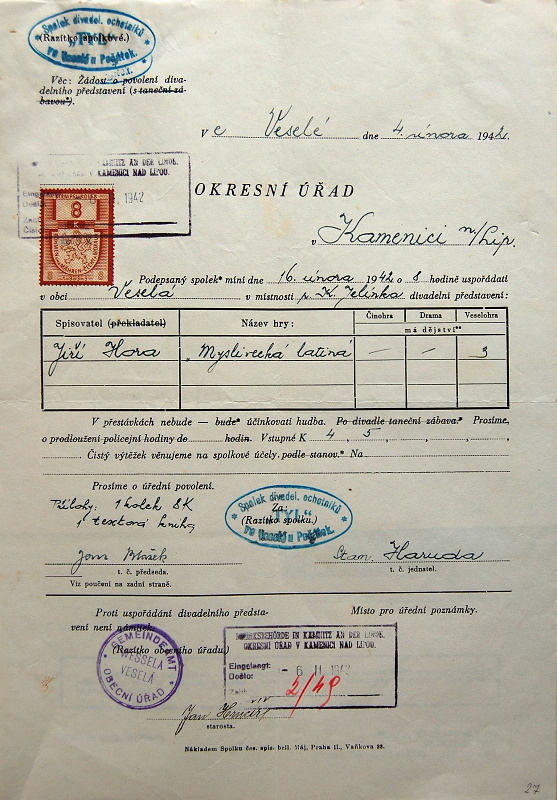 Spolek divadel. ochotníků
(Razítko spolkové.)
"TYL"
ve Veselé u Počátek.
Věc: Žádost o povolení diva-
delního představení (s taneční zá-
bavou*).
v e Veselé dne 4. února 1942.
KAMNITZ AN DER LINDE.
V KAMENICI NAD LIPOU.
Došlo: 1942
8
K
OKRESNÍ ÚŘAD
v Kamenici n/Lip.
Podepsaný spolek* míní dne 16. února 1942 o 8 hodině uspořádati
v obci Veselá v místnosti p. K. Jelínka divadelní představení:
Spisovatel (překladatel) Název hry: Činohra Drama Veselohra
má dějství**
Jiří Hora "Myslivecká latina" — — 3
V přestávkách nebude — bude* účinkovati hudba. Po divadle taneční zábava.* Prosíme,
o prodloužení policejní hodiny do hodin. Vstupné K 4, 5, , , ,
Čistý výtěžek věnujeme na spolkové účely podle stanov.* Na
Prosíme o úřední povolení.
Přílohy: 1 kolek 8K
1 textová kniha
Spolek divadel. ochotníků
Za:
"TYL"
(Razítko spolku.)
ve Veselé u Počátek.
Jan Blažek Stan. Haruda
t. č. předseda. t. č. jednatel.
Viz poučení na zadní straně.
Proti uspořádání divadelního předsta-
vení není námitek.
Místo pro úřední poznámky.
(Razítko obecního úřadu.)
GEMEINDEAMT
WESSELA
VESELÁ
OBECNÍ ÚŘAD
BEZIRKSBEHÖRDE IN KAMNITZ AN DER LINDE.
OKRESNÍ ÚŘAD V KAMENICI NAD LIPOU.
Eingelangt:
Došlo: - 6 II. 1942
Zahl:
2/49
Jan
starosta.
Nákladem Spolku čes. spis. bell. Máj, Praha II., Vaňkova 28.
27